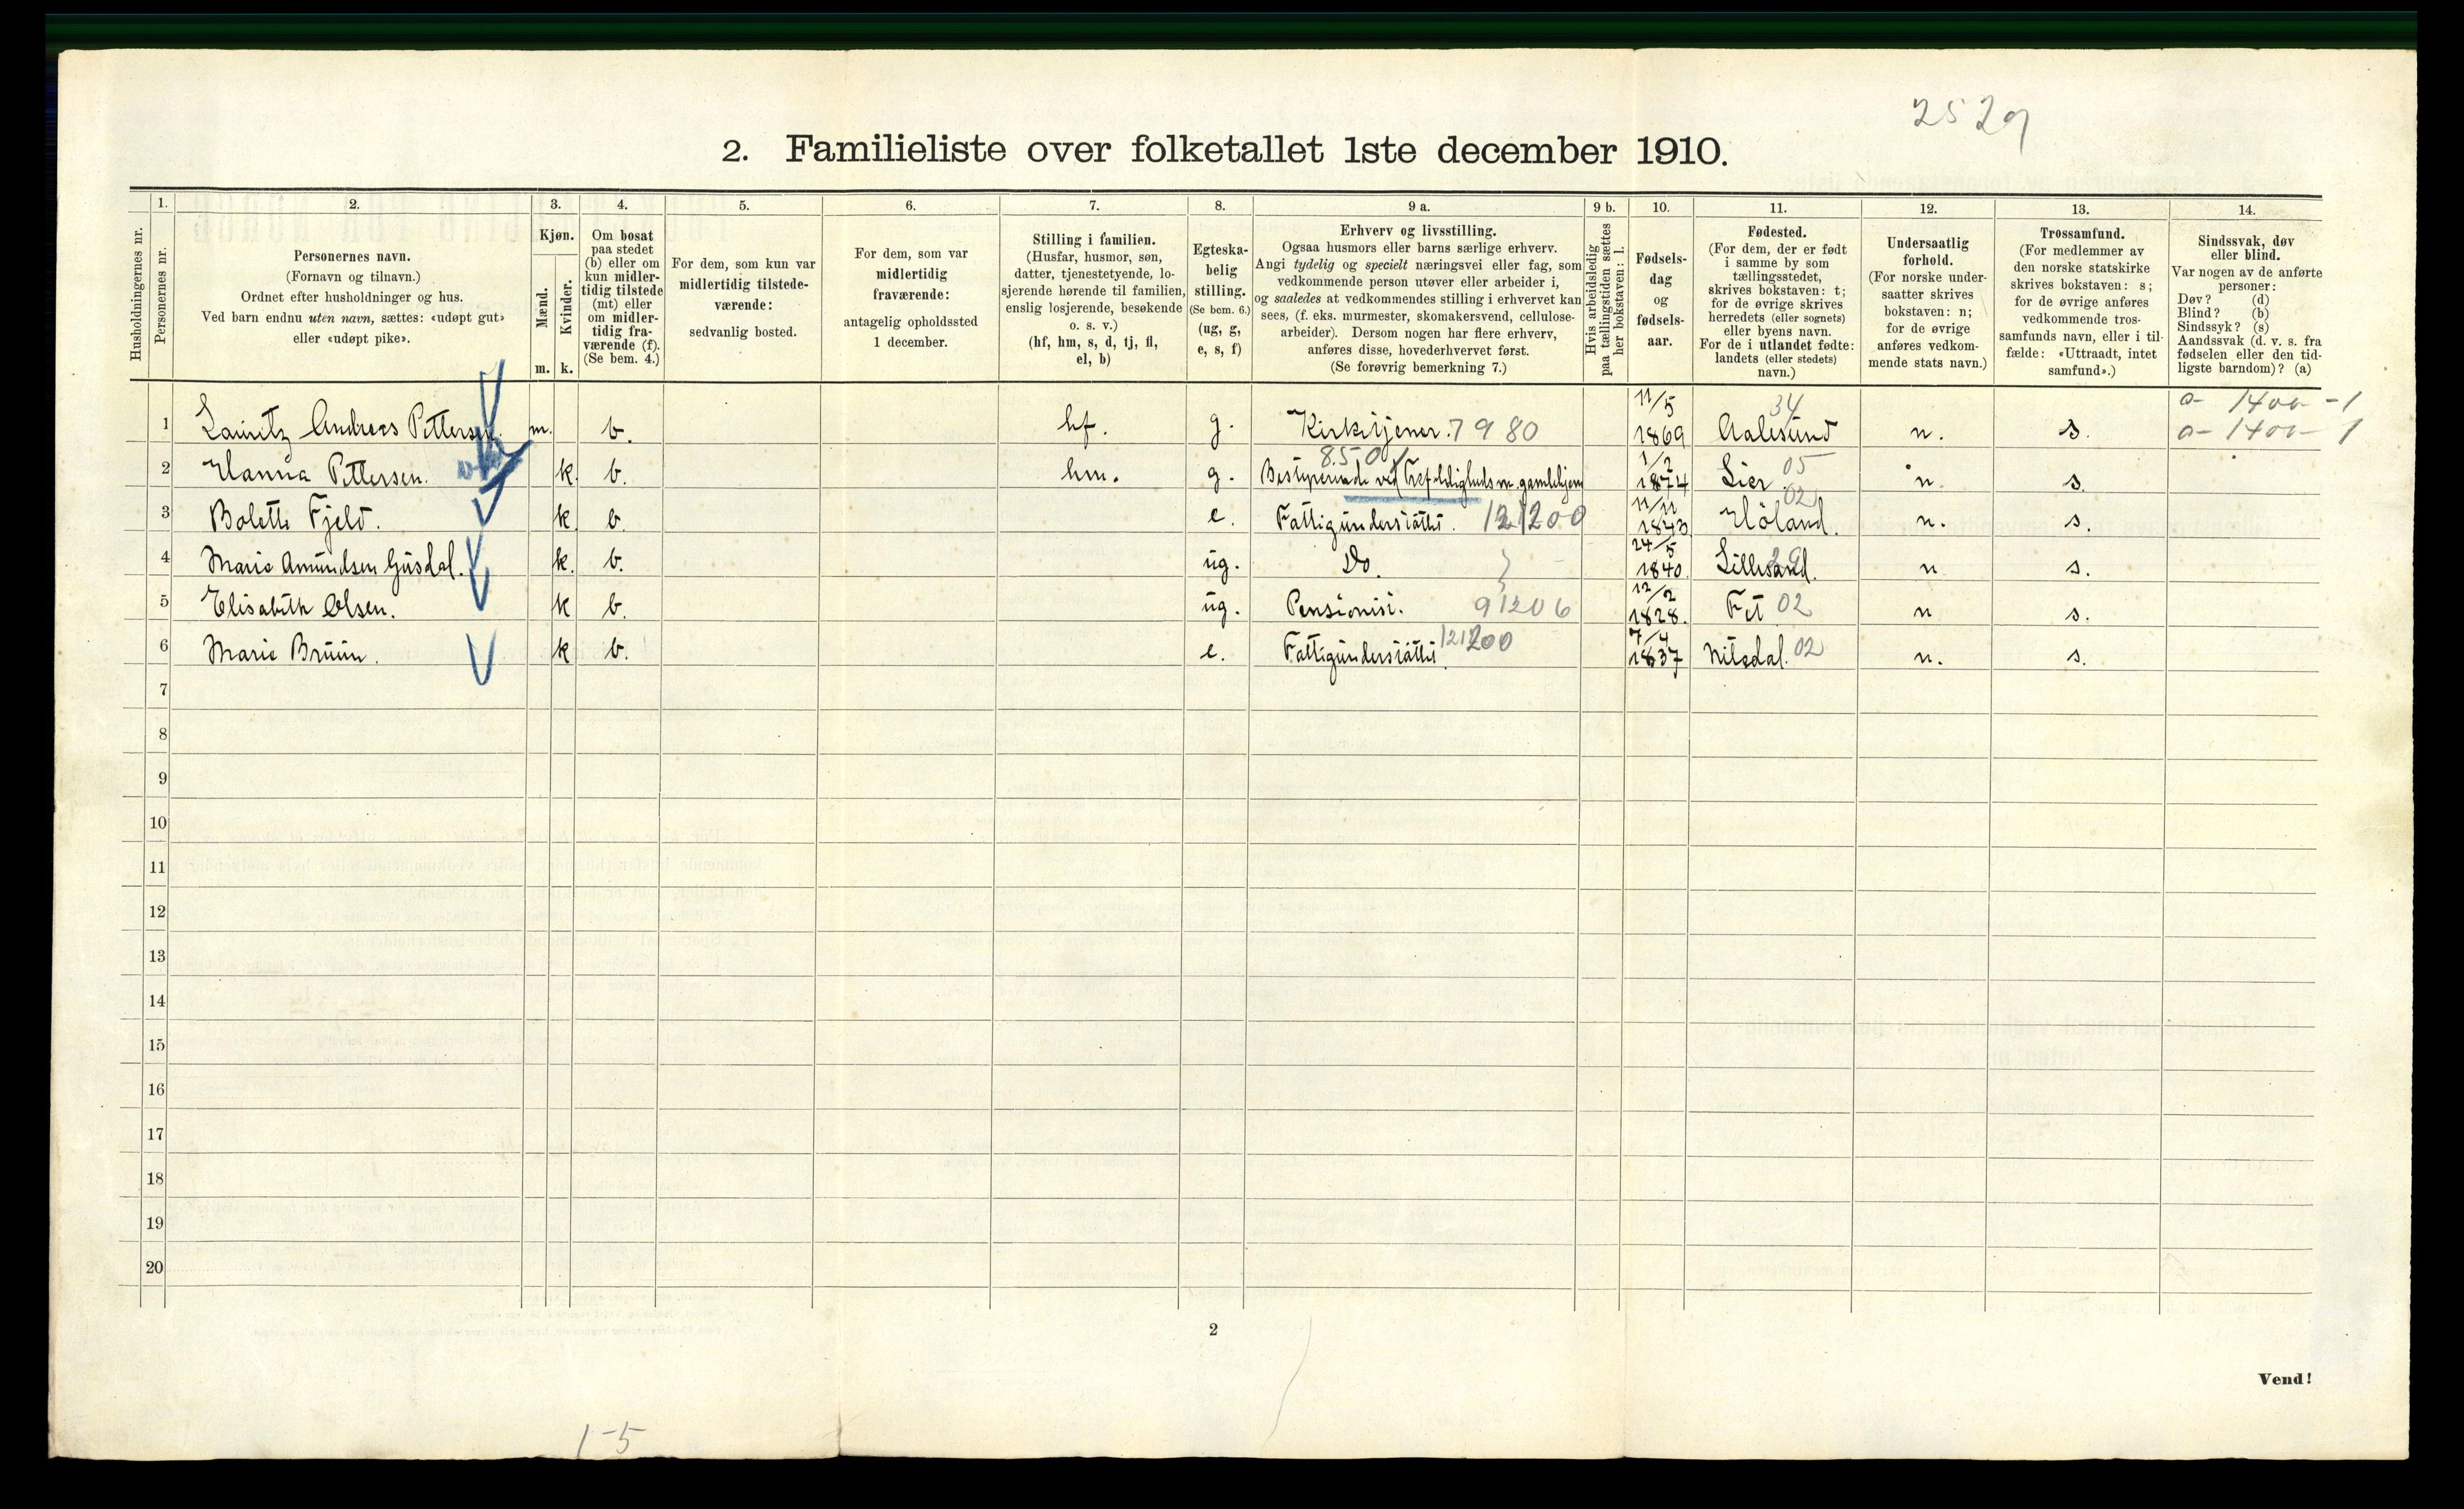 2529
2. Familieliste over folketallet 1ste december 1910.
Husholdningernes nr.
1.
Personernes nr.
2.
Personernes navn.
(Fornavn og tilnavn.)
Ordnet efter husholdninger og hus.
Ved barn endnu uten navn, sættes: «udøpt gut»
eller «udøpt pike».
3.
Kjøn.
Mænd.
Kvinder.
m. k.
4.
Om bosat
paa stedet
(b) eller om
kun midler-
tidig tilstede
(mt) eller
om midler-
tidig fra-
værende (f).
(Se bem. 4.)
5.
For dem, som kun var
midlertidig tilstede-
værende:
sedvanlig bosted.
6.
For dem, som var
midlertidig
fraværende:
antagelig opholdssted
1 december.
7.
Stilling i familien.
(Husfar, husmor, søn,
datter, tjenestetyende, lo-
sjerende hørende til familien,
enslig losjerende, besøkende
o. s. v.)
(hf, hm, s, d, tj, fl,
el, b)
8.
Egteska-
belig
stilling.
(Se bem. 6.)
(ug, g,
e, s, f)
9 a.
Erhverv og livsstilling.
Ogsaa husmors eller barns særlige erhverv.
Angi tydelig og specielt næringsvei eller fag, som
vedkommende person utøver eller arbeider i,
og saaledes at vedkommendes stilling i erhvervet kan
sees, (f. eks. murmester, skomakersvend, cellulose-
arbeider). Dersom nogen har flere erhverv,
anføres disse, hovederhvervet først.
(Se forøvrig bemerkning 7.)
9 b.
Hvis arbeidsledig
paa tællingstiden sættes
her bokstaven: l.
10.
Fødsels-
dag
og
fødsels-
aar.
11.
Fødested.
(For dem, der er født
i samme by som
tællingsstedet,
skrives bokstaven: t;
for de øvrige skrives
herredets (eller sognets)
eller byens navn.
For de i utlandet fødte:
landets (eller stedets)
navn.)
12.
Undersaatlig
forhold.
(For norske under-
saatter skrives
bokstaven: n;
for de øvrige
anføres vedkom-
mende stats navn.)
13.
Trossamfund.
(For medlemmer av
den norske statskirke
skrives bokstaven: s;
for de øvrige anføres
vedkommende tros-
samfunds navn, eller i til-
fælde: «Uttraadt, intet
samfund».)
14.
Sindssvak, døv
eller blind.
Var nogen av de anførte
personer:
Døv? (d)
Blind? (b)
Sindssyk? (s)
Aandssvak (d. v. s. fra
fødselen eller den tid-
ligste barndom)? (a)
1 Lauritz Andreas Pettersen. m. b. hf. g. Kirketjener. 7980 11/5 1869 Aalesund 34 n. s. 0- 1400 -1
0- 1400- 1
2 Hanna Pettersen. k. b. hm. g. Bestyrerinde ved Trefoldigheds m. gamlehjem 8501 1/2 1874 Lier 05 n. s.
3 Bolette Fjeld. k. b. e. Fattigunderstøttet. 121200 11/11 1843 Høland. 02 n. s.
4 Marie Amundsen Gusdal. k. b. ug. Do. 24/5 1840. Lillesand. 29 n s.
5 Elisabeth Olsen. k b. ug. Pensionist. 91206 12/2 1828. Fet 02 n s.
6 Marie Bruun. k b. e. Fattigunderstøttet. 121200 7/4 1837 Nitedal. 02 n. s.
7
8
9
10
11
12
13
14
15
16
17
18
19
20
2
Vend!
1-5